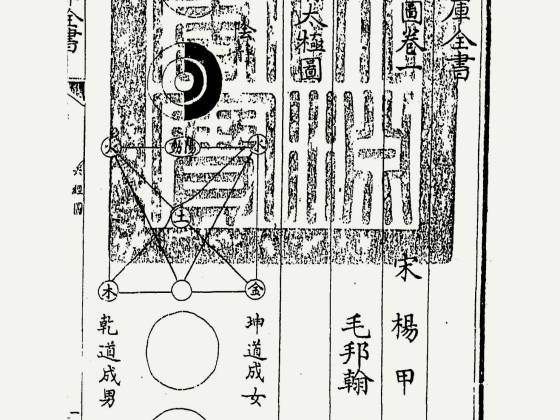 庫全書
圖卷一
宋 楊甲
毛邦翰
太極圖
陰靜
陽動
火
水
土
木
金
坤道成女
乾道成男
全書